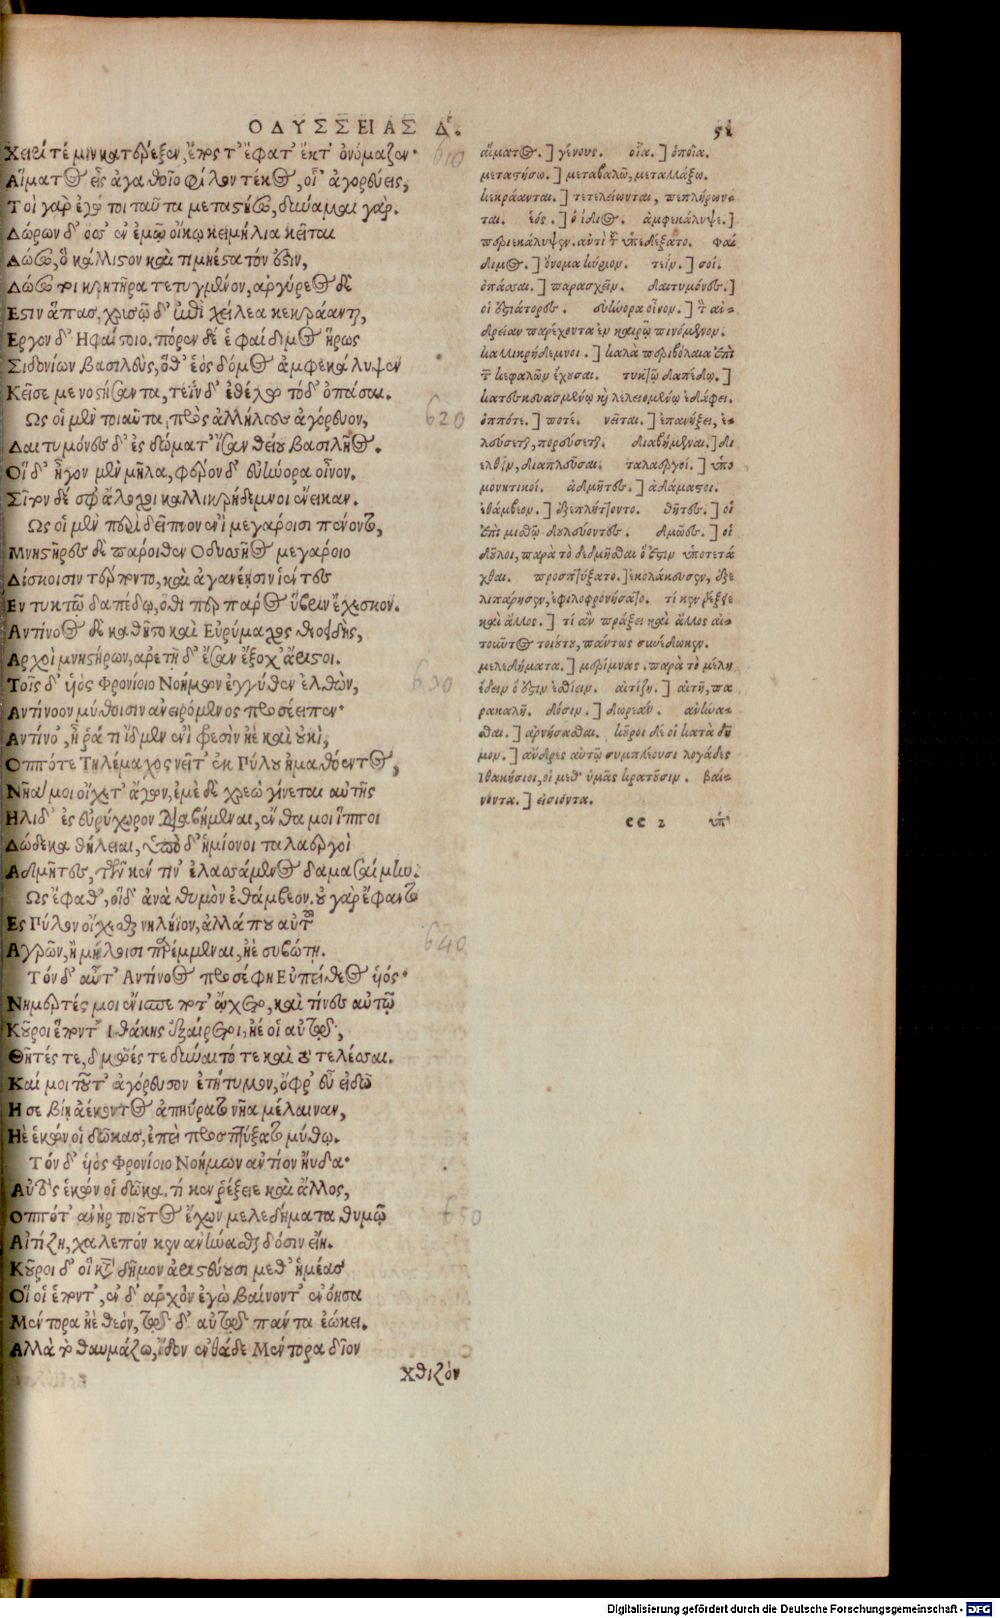 ΟΔΥΣΣΕΙΑΣ Δ.
Χειρί τέ μιν κατέρεξεν, ἔπος τ' ἔφατ' ἔκτ' ὀνόμαζεν· 610
Αἵματος εἶς ἀγαθοῖο φίλον τέκος, οἷ' ἀγορεύεις,
Τοὶ γὰρ ἐγώ τοι ταῦτα μεταστήσω, δύναμαι γάρ.
Δώρων δ' ὅσσ' ἐν ἐμῷ οἴκῳ κειμήλια κεῖται
Δώσω, ὃ κάλλιστον καὶ τιμηέστατόν ἐστιν,
Δώσω τοι κρητῆρα τετυγμένον, ἀργύρεος δὲ
Εστιν ἅπας, χρυσῷ δ' ἐπὶ χείλεα κεκράανται,
Εργον δ' Ηφαίστοιο. πόρεν δέ ἑ φαίδιμος ἥρως
Σιδονίων βασιλεὺς, ὅθ' ἑὸς δόμος ἀμφεκάλυψεν
Κεῖσέ με νοστήσαντα, τεῒν δ' ἐθέλω τόδ' ὀπάσσαι.
Ως οἱ μὲν τοιαῦτα πρὸς ἀλλήλους ἀγόρευον, 620
Δαιτυμόνες δ' ἐς δώματ' ἴσαν θείου βασιλῆος.
Οἱ δ' ἦγον μὲν μῆλα, φέρον δ' εὐήνορα οἶνον.
Σῖτον δέ σφ' ἄλοχοι καλλικρήδεμνοι ἔνεικαν.
Ως οἱ μὲν περὶ δεῖπνον ἐνὶ μεγάροισι πένοντο,
Μνηστῆρες δὲ πάροιθεν Οδυσσῆος μεγάροιο
Δίσκοισιν τέρποντο, καὶ αἰγανέῃσιν ἱέντες
Εν τυκτῷ δαπέδῳ, ὅθι περ πάρος ὕβριν ἔχεσκον.
Αντίνοος δὲ καθῆστο καὶ Εὐρύμαχος θεοειδὴς,
Αρχοὶ μνηστήρων, ἀρετῇ δ' ἔσαν ἔξοχ' ἄριστοι.
Τοῖς δ' υἱὸς Φρονίοιο Νοήμων ἐγγύθεν ἐλθὼν, 630
Αντίνοον μύθοισιν ἀνειρόμενος προσέειπεν·
Αντίνο', ἦ ῥά τι ἴδμεν ἐνὶ φρεσὶν ἠὲ καὶ οὐκὶ,
Οππότε Τηλέμαχος νεῖτ' ἐκ Πύλου ἠμαθόεντος,
Νῆά μοι οἴχετ' ἄγων, ἐμὲ δὲ χρεὼ γίνεται αὐτῆς
Ηλιδ' ἐς εὐρύχορον διαβήμεναι, ἔνθα μοι ἵπποι
Δώδεκα θήλειαι, ὑπὸ δ' ἡμίονοι ταλαεργοὶ
Αδμῆτες, τῶν κέν τιν' ἐλασσάμενος δαμασαίμην.
Ως ἔφαθ', οἱ δ' ἀνὰ θυμὸν ἐθάμβεον. οὐ γὰρ ἔφαντο
Ες Πύλον οἴχεσθαι νηλήϊον, ἀλλά που αὐτοῦ
Αγρῶν, ἢ μήλοισι παρέμμεναι, ἠὲ συβώτῃ. 640
Τόνδ' αὖτ' Αντίνοος προσέφη Εὐπείθεος υἱός·
Νημερτές μοι ἔνισπε πότ' ᾤχετο, καὶ τίνες αὐτῷ
Κοῦροι ἕποντ' Ιθάκης ἐξαίρετοι, ἠέ οἱ αὐτοῦ,
Θῆτές τε, δμῶές τε δύναιτό τε καὶ τὸ τελέσσαι.
Καί μοι τοῦτ' ἀγόρευσον ἐτήτυμον, ὄφρ' εὖ εἰδῶ
Η σε βίῃ ἀέκοντος ἀπηύρατο νῆα μέλαιναν,
Ηὲ ἑκών οἱ δῶκας, ἐπεὶ προσπτύξατο μύθῳ.
Τόν δ' υἱὸς Φρονίοιο Νοήμων ἀντίον ηὔδα·
Αὐτὸς ἑκών οἱ δῶκα. τί κεν ῥέξειε καὶ ἄλλος,
Οππότ' ἀνὴρ τοιοῦτος ἔχων μελεδήματα θυμῷ 650
Αἰτίζῃ, χαλεπόν κεν ἀνήνασθαι δόσιν εἴη.
Κοῦροι δ' οἳ κατὰ δῆμον ἀριστεύουσι μεθ' ἡμέας
Οἵ οἱ ἕποντ', ἐν δ' ἀρχὸν ἐγὼ βαίνοντ' ἐνόησα
Μέντορα ἠὲ θεὸν, τῷ δ' αὐτῷ πάντα ἐῴκει.
Αλλὰ τὸ θαυμάζω, ἴδον ἐνθάδε Μέντορα δῖον
Χθιζὸν
αἵματος.] γένους. οἷα.] ὁποῖα.
μεταστήσω.] μεταβαλῶ, μεταλλάξω.
κεκράανται.] τετελείωνται, πεπλήρων-
ται. ἑός.] ὁ ἴδιος. ἀμφεκάλυψε.]
περιεκάλυψεν. ἀντὶ τοῦ ὑπεδέξατο. φαί
διμος.] ὄνομα κύριον. τεΐν.] σοί.
ὀπάσσαι.] παρασχεῖν. δαιτυμόνες.]
οἱ ἑστιάτορες. εὐήνορα οἶνον.] τὸ ἀν-
δρείαν παρέχοντα ἐν καιρῷ πινόμενον.
καλλικρήδεμνοι.] καλὰ περιβόλαια ἐπὶ
τῶν κεφαλῶν ἔχουσαι. τυκτῷ δαπέδῳ.]
κατεσκευασμένῳ καὶ λελειομένῳ ἐδάφει.
ὁππότε.] ποτέ. νεῖται.] ἐπανήξει, ἐ-
λεύσεται, πορεύσεται. διαβήμεναι.] δι
ελθεῖν, διαπλεῦσαι. ταλαεργοί.] ὑπο
μονητικοί. ἀδμῆτες.] ἀδάμαστοι.
ἐθάμβεον.] ἐξεπλήττοντο. θῆτες.] οἱ
ἐπὶ μισθῷ δουλεύοντες. δμῶες.] οἱ
δοῦλοι, παρὰ τὸ δεδμῆσθαι ὅ ἐστιν ὑποτετά
χθαι. προσπτύξατο.] ἐκολάκευσεν, ἐξε
λιπάρησεν, ἐφιλοφρονήσατο. τί κεν ῥέξειε
καὶ ἄλλος.] τί ἂν πράξει καὶ ἄλλος αἰ-
τοῦντος τοιούτου, πάντως συνέδωκεν.
μελεδήματα.] μερίμνας. παρὰ τὸ μέλη
ἔδειν ὅ ἐστιν ἐσθίειν. αἰτίζῃ.] αἰτῇ, πα
ρακαλῇ. δόσιν.] δωρεάν. ἀνήνα-
σθαι.] ἀρνήσασθαι. κοῦροι δὲ οἱ κατὰ δῆ
μον.] ἄνδρες αὐτῷ συμπλέουσι λογάδες
Ιθακήσιοι, οἱ μεθ' ὑμᾶς κρατοῦσιν. βαί-
νοντα.] εἰσιόντα.
cc 2 ὑπ'
Digitalisierung gefördert durch die Deutsche Forschungsgemeinschaft - DFG